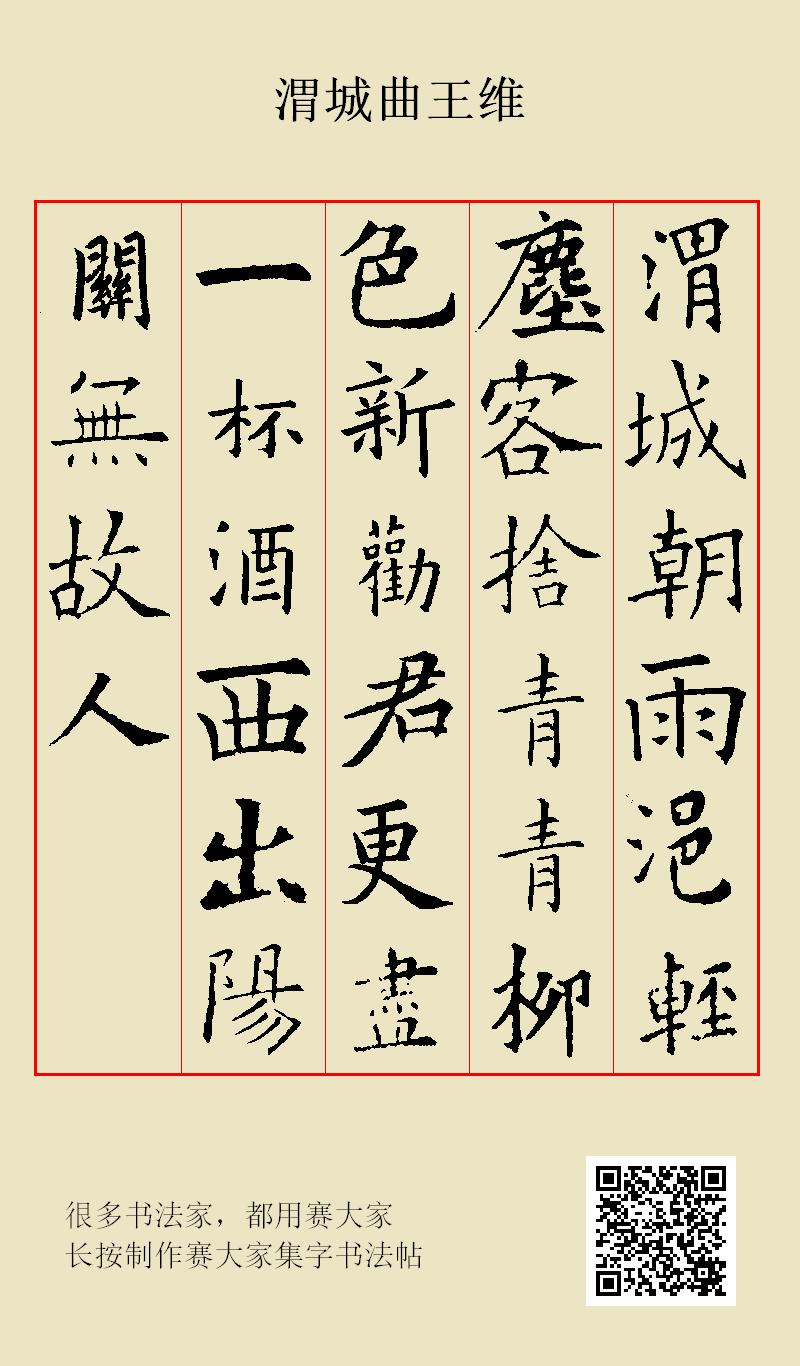 渭城曲王维
渭城朝雨浥輕
塵客捨青青柳
色新勸君更盡
一杯酒西出陽
關無故人
很多书法家，都用赛大家
长按制作赛大家集字书法帖